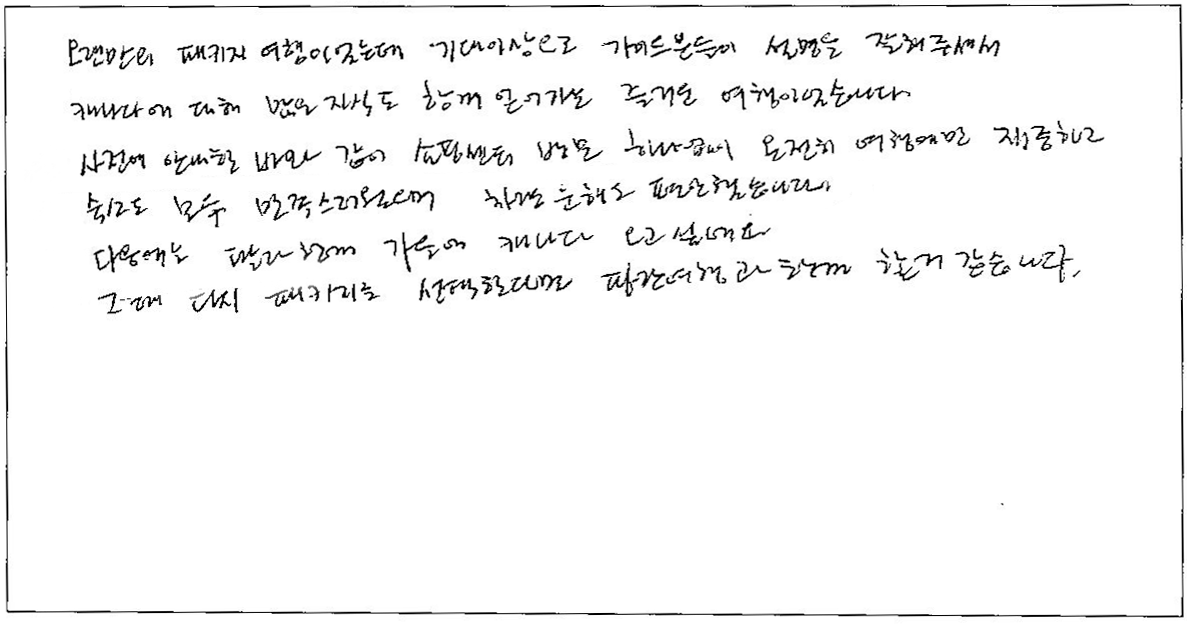 오랜만의 패키지 여행이었는데 기대이상으로 가이드분들이 설명을 잘해주셔서
캐나다에 대해 많은 지식도 함께 얻어가는 즐거운 여행이었습니다.
사전에 안내한 바와 같이 쇼핑센터 방문 하나없이 온전히 여행에만 집중하고
숙소도 모두 만족스러웠으며 차량 운행도 편안했습니다.
다음에는 딸과 함께 가을에 캐나다 오고 싶네요
그때 다시 패키지를 선택한다면 파란여행과 함께 할거 같습니다.